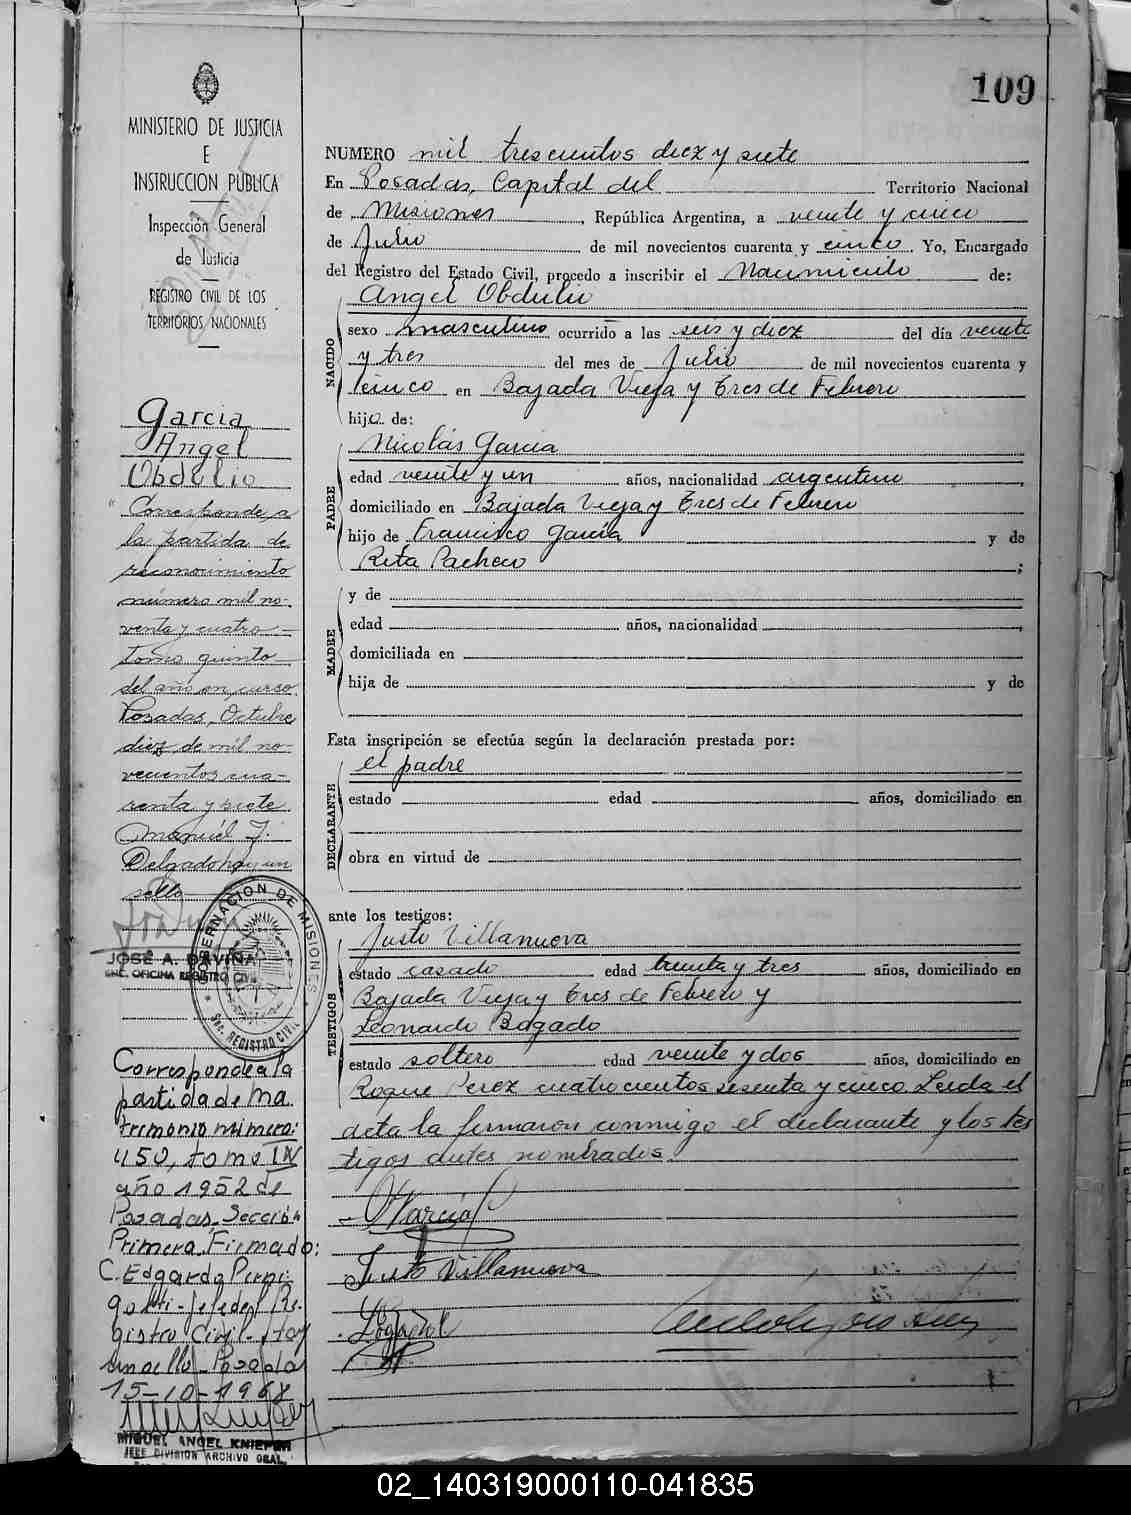 109
MINISTERIO DE JUSTICIA
E
INSTRUCCION PUBLICA
Inspección General
de Justicia
REGISTRO CIVIL DE LOS
TERRITORIOS NACIONALES
Garcia
Angel
Obdulio
"Corresponde a
la partida de
reconocimiento
número mil no-
venta y cuatro
tomo quinto
del año en curso.
Posadas, Octubre
diez de mil no-
vecientos cua-
renta y siete
Manuel J.
Delgado hay un
sello
JOSÉ A. DAVIÑA
ENC. OFICINA REGISTRO CIVIL
GOBERNACION DE MISIONES
REGISTRO CIVIL
Corresponde a la
partida de ma
trimonio número:
450, tomo IV
año 1952 de
Posadas, Sección
Primera. Firmado:
C. Edgardo
Jefe del Re-
gistro Civil - Hay
un sello - Posadas
15-10-1968
MIGUEL ANGEL KNIEPER
JEFE DIVISION ARCHIVO GRAL.
NUMERO mil trescientos diez y siete
En Posadas, Capital del Territorio Nacional
de Misiones, República Argentina, a veinte y cinco
de Julio de mil novecientos cuarenta y cinco. Yo, Encargado
del Registro del Estado Civil, procedo a inscribir el Nacimiento de:
Angel Obdulio
NACIDO
sexo masculino ocurrido a las seis y diez del día veinte
y tres del mes de Julio de mil novecientos cuarenta y
cinco en Bajada Vieja y Tres de Febrero
hijo de:
Nicolás Garcia
PADRE
edad veinte y un años, nacionalidad argentino,
domiciliado en Bajada Vieja y Tres de Febrero
hijo de Francisco Garcia y de
Rita Pacheco;
MADRE
y de
edad años, nacionalidad,
domiciliada en
hija de y de
Esta inscripción se efectúa según la declaración prestada por:
el padre
DECLARANTE
estado edad años, domiciliado en
obra en virtud de
ante los testigos:
Justo Villanueva
TESTIGOS
estado casado edad treinta y tres años, domiciliado en
Bajada Vieja y Tres de Febrero y
Leonardo Bogado
estado soltero edad veinte y dos años, domiciliado en
Roque Perez cuatrocientos sesenta y cinco. Leida el
acta la firmaron conmigo el declarante y los tes
tigos antes nombrados.
NGarcia
Justo Villanueva
LBogado
02_140319000110-041835